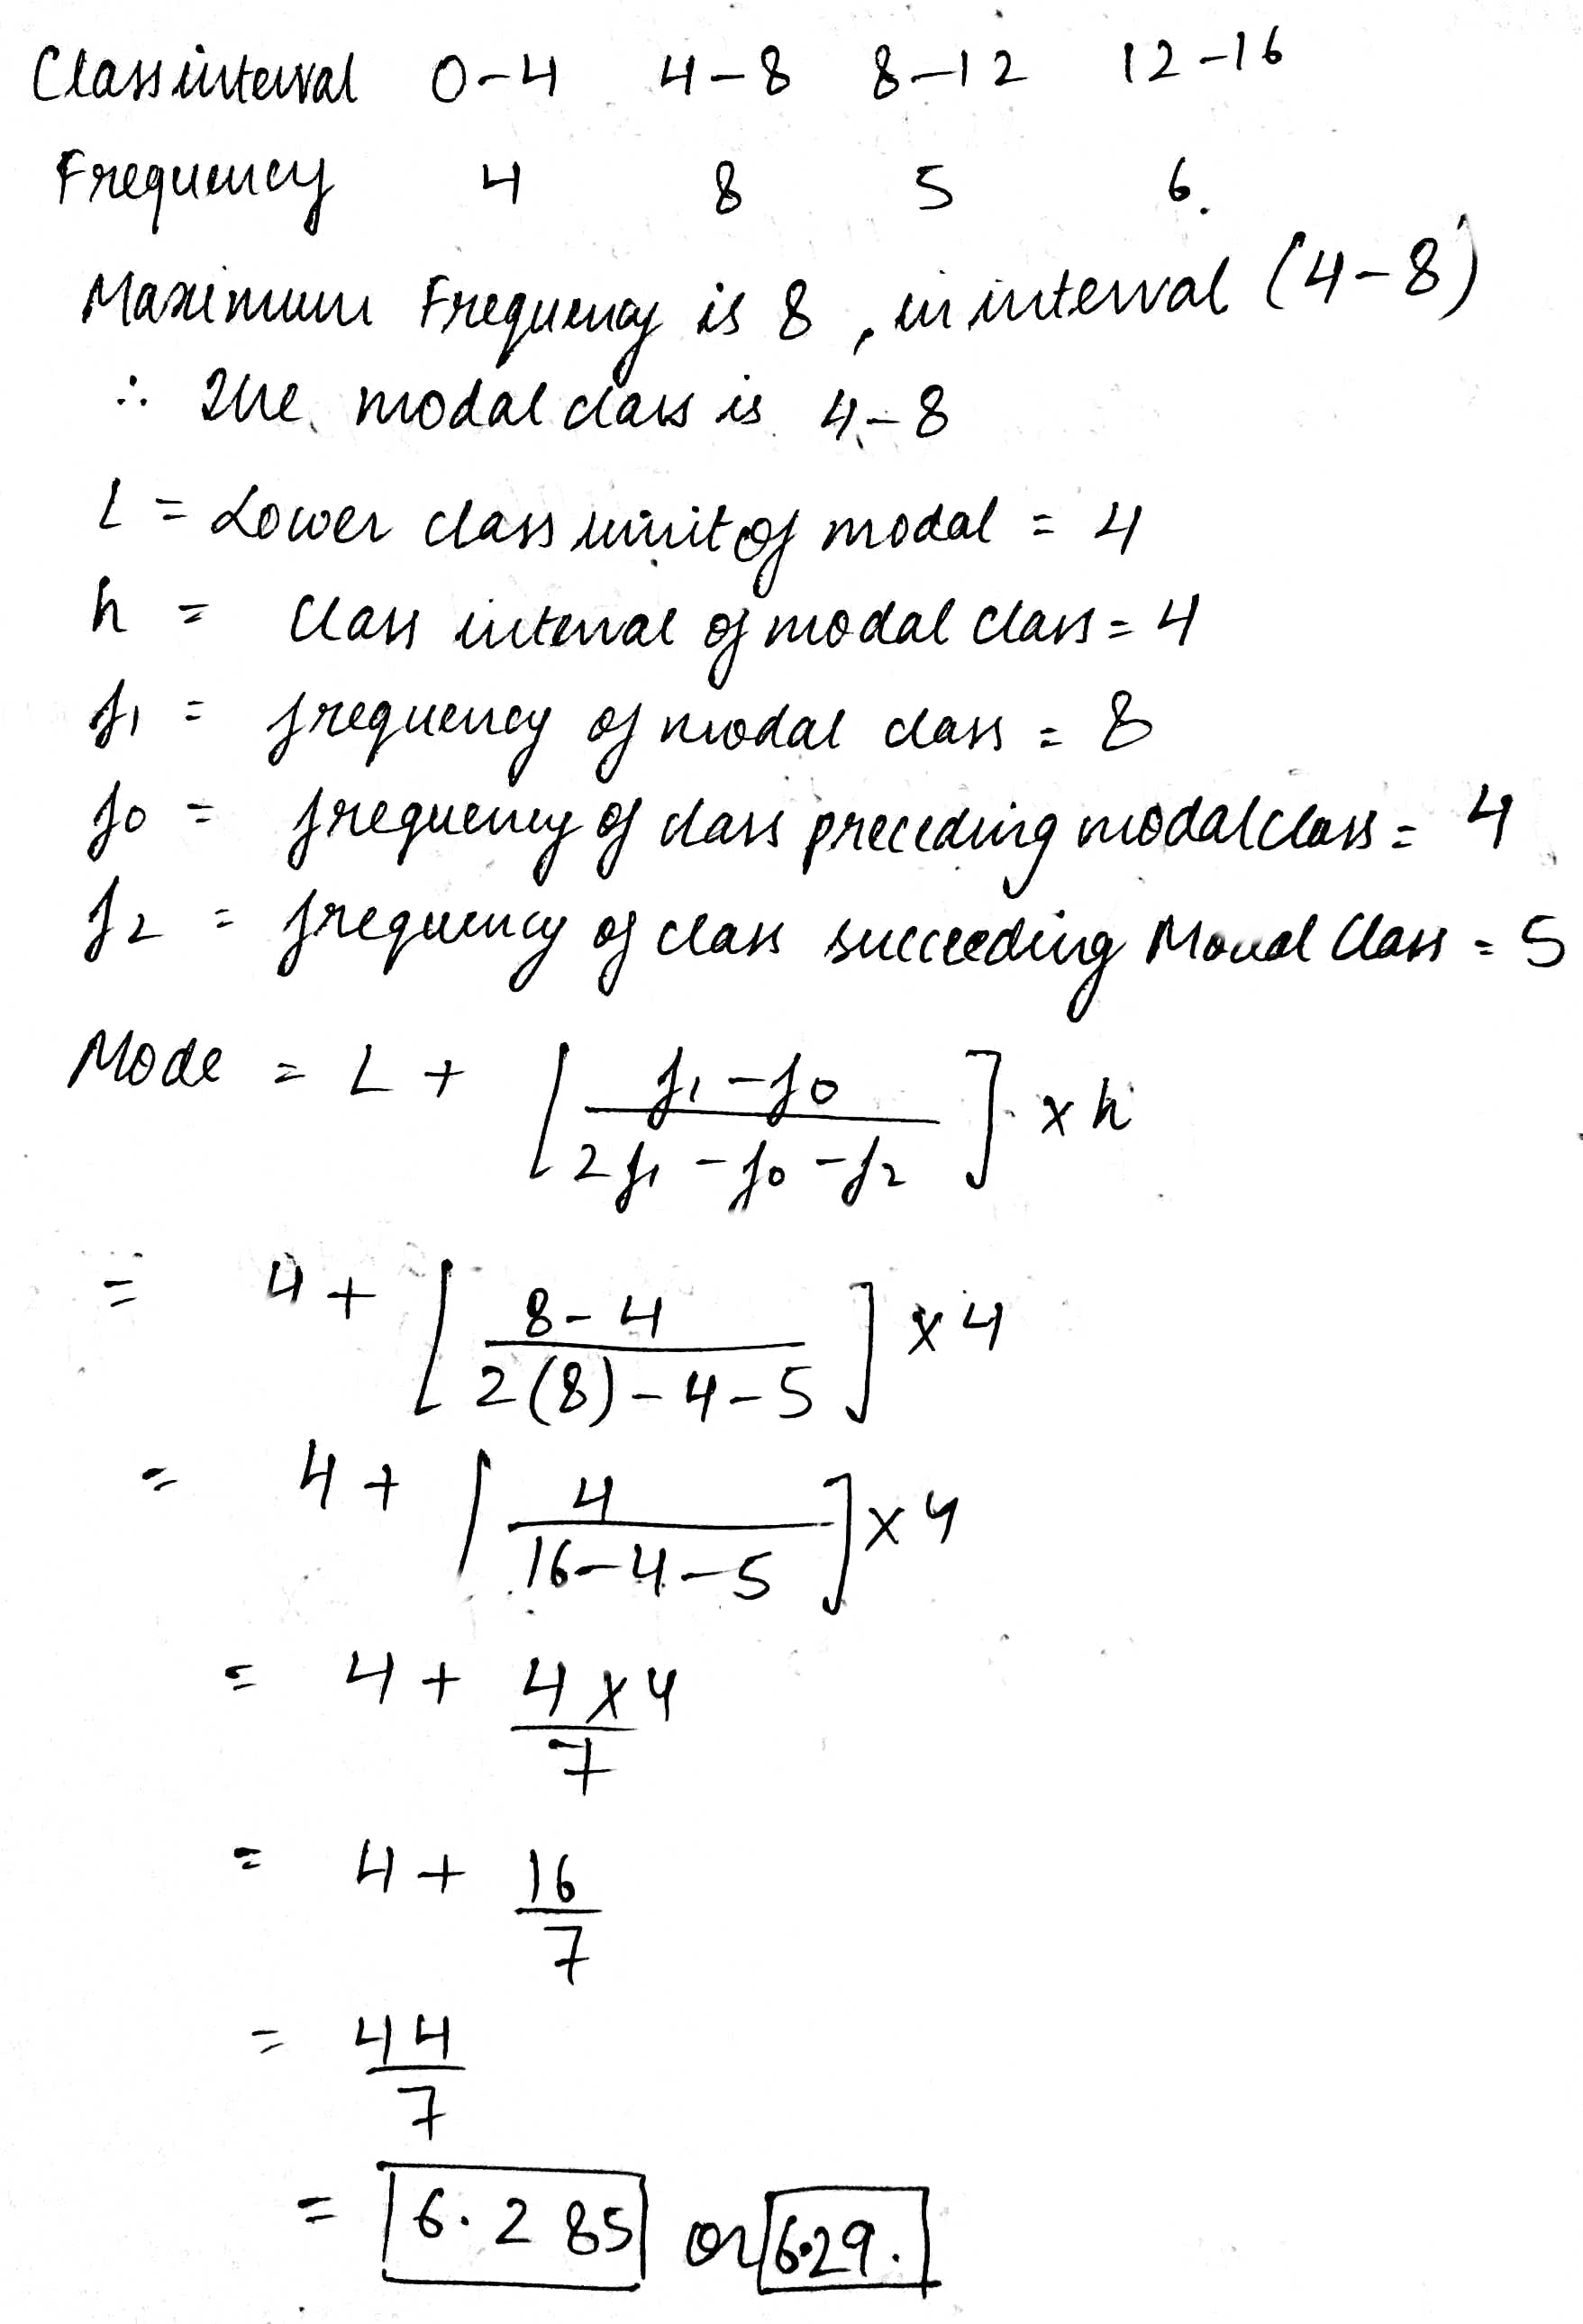 Class interval 0-4 4-8 8-12 12-16
Frequency 4 8 5 6.
Maximum Frequency is 8, in interval (4-8)
∴ The modal class is 4-8
l = Lower class limit of modal = 4
h = Class interval of modal class = 4
f1 = frequency of modal class = 8
f0 = frequency of class preceding modal class = 4
f2 = frequency of class succeeding Modal Class = 5
Mode = L + [ (f1 - f0) / (2f1 - f0 - f2) ] x h
= 4 + [ (8-4) / (2(8) - 4 - 5) ] x 4
= 4 + [ 4 / (16-4-5) ] x 4
= 4 + (4 x 4) / 7
= 4 + 16/7
= 44/7
= 6.285 or 6.29.